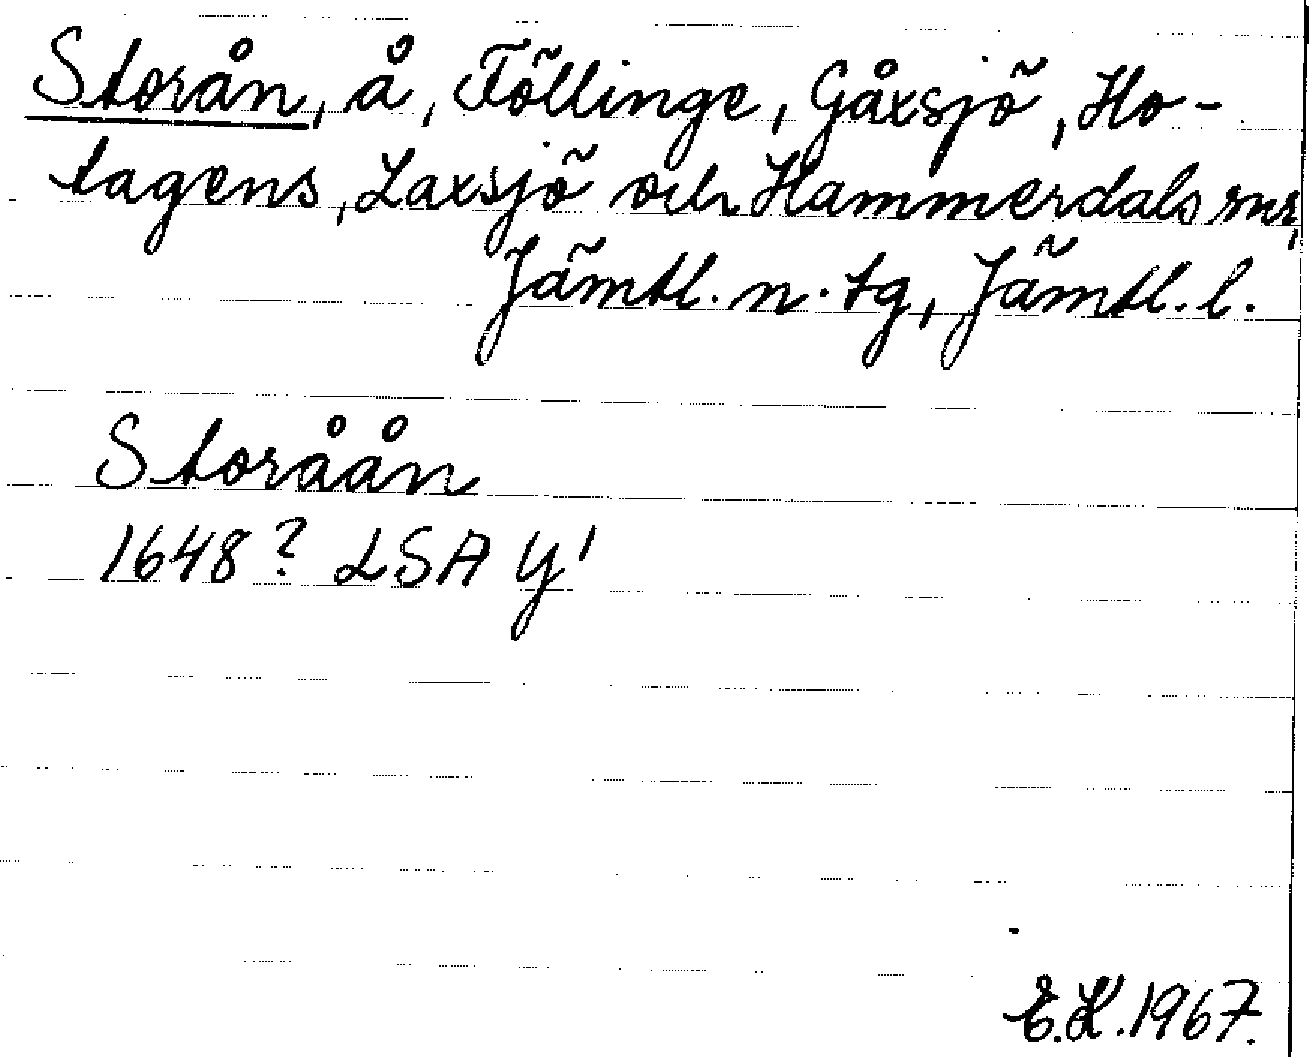 Storån, å, Föllinge, Gåxsjö, Ho-
tagens, Laxsjö och Hammerdals snr,
Jämtl. n. tg, Jämtl. l.
Storåån
1648? LSA Y'
E.K. 1967.